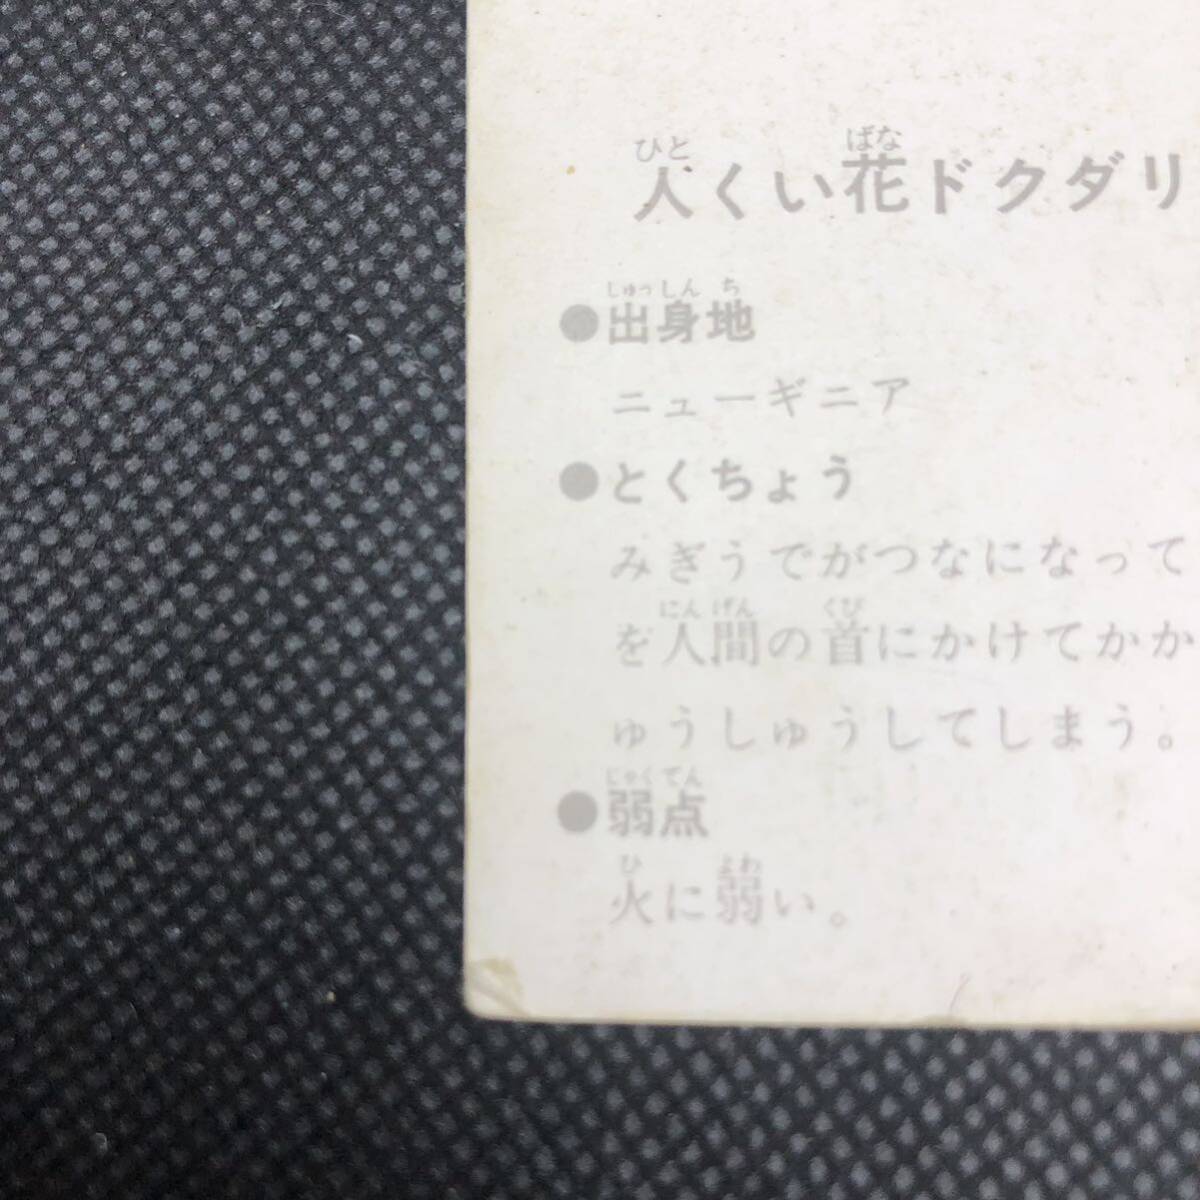 人くい花ドクダリ
ひと ばな
●出身地
しゅっしんち
ニューギニア
●とくちょう
みぎうでがつなになって
を人間の首にかけてかか
にんげん くび
ゅうしゅうしてしまう。
●弱点
じゃくてん
火に弱い。
ひ よわ